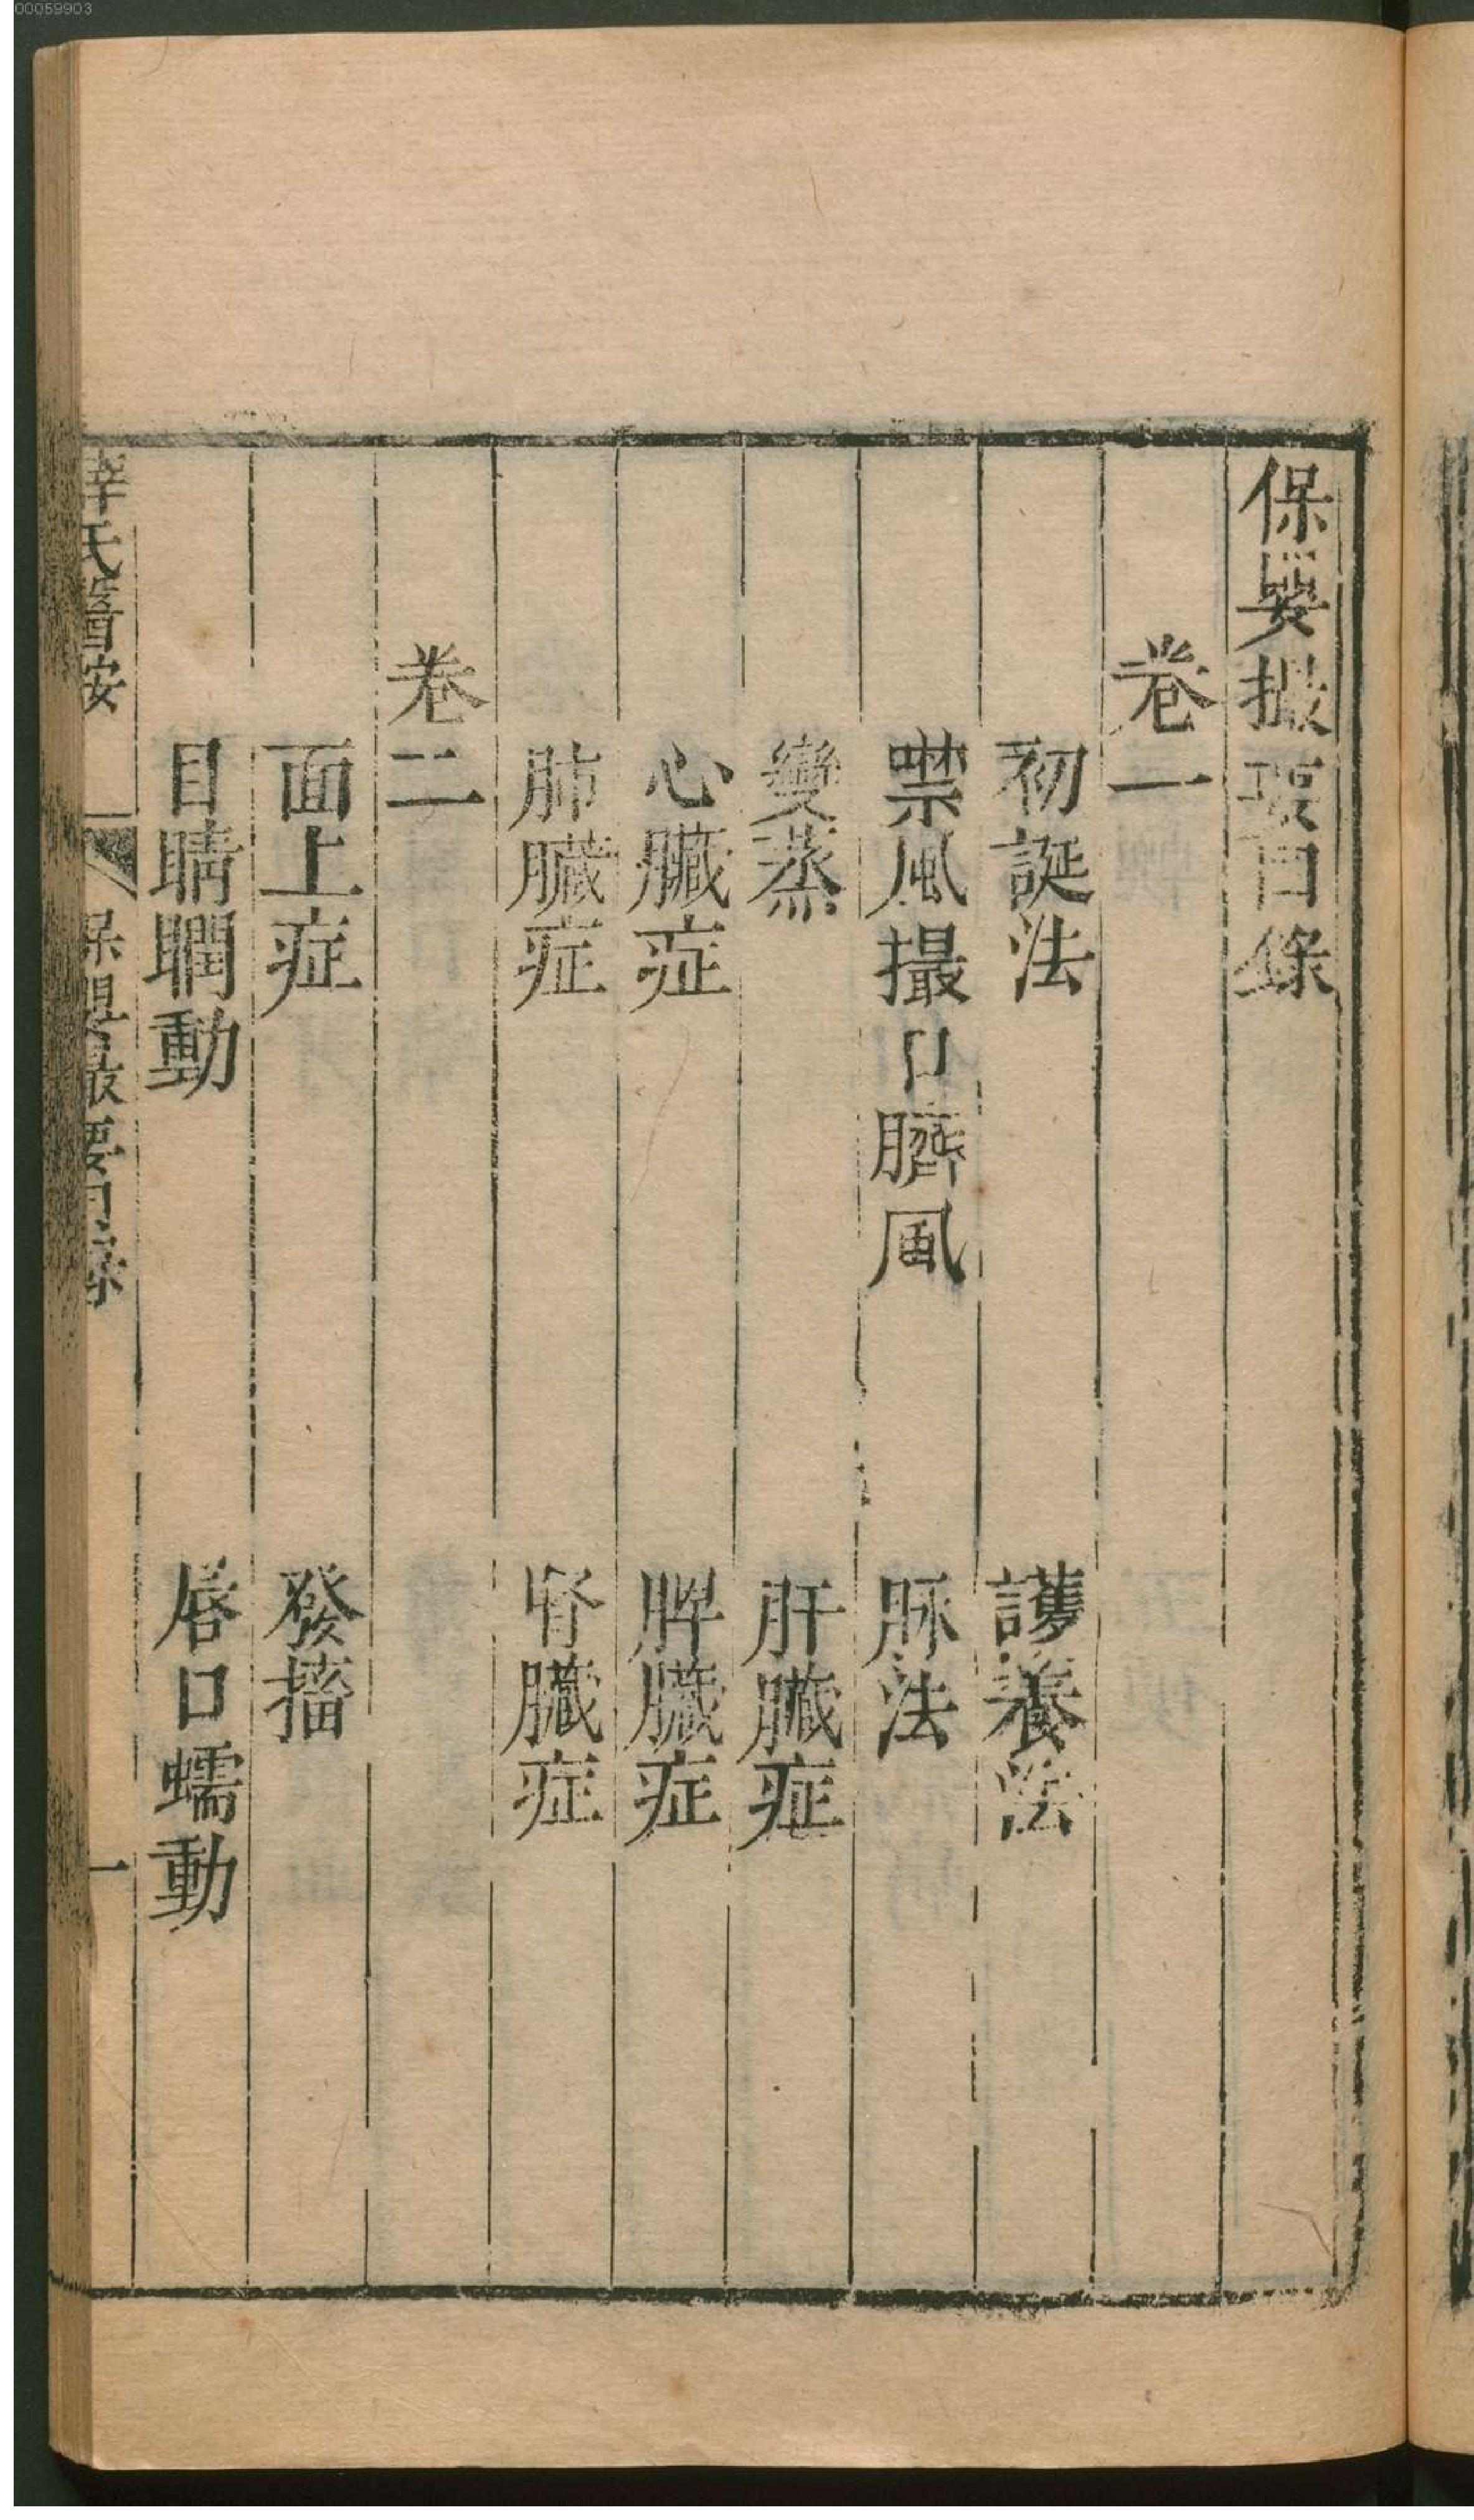 00059903
保嬰撮要目錄
卷一
初誕法　護養法
噤風撮口臍風　脉法
變蒸　肝臟症
心臟症　脾臟症
肺臟症　腎臟症
卷二
面上症　發搐
目睛瞤動　唇口蠕動
薛氏醫按　保嬰撮要目錄　一